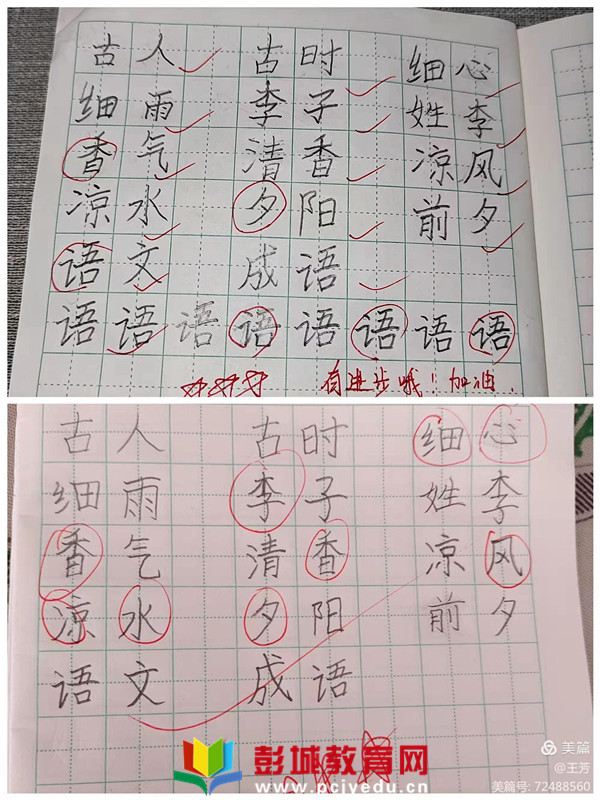 古人 古时 细心
细雨 李子 姓李
香气 清香 凉风
凉水 夕阳 前夕
语文 成语
语语语语语语语语
有进步哦！加油.
古人 古时 细心
细雨 李子 姓李
香气 清香 凉风
凉水 夕阳 前夕
语文 成语
彭城教育网
www.pciyedu.cn
美篇
@王芳
美篇号: 72488560